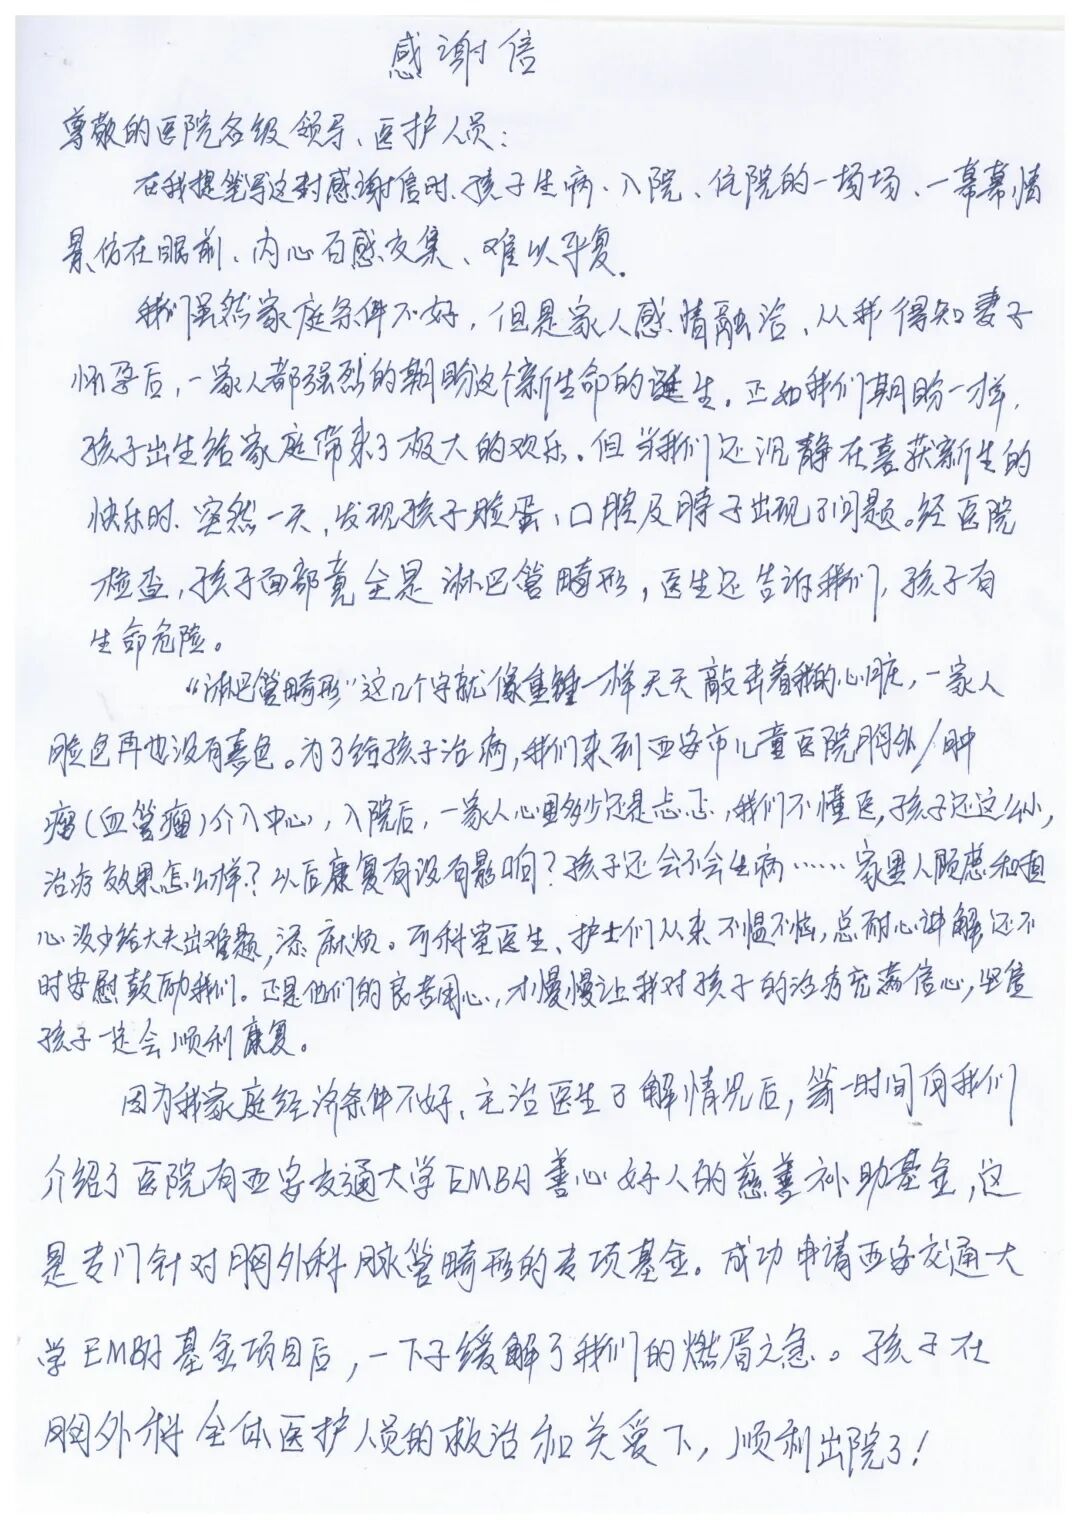 感谢信
尊敬的医院各级领导、医护人员:
在我提笔写这封感谢信时、孩子生病、入院、住院的一场场、一幕幕情
景仿在眼前、内心百感交集、难以平复.
我们虽然家庭条件不好,但是家人感情融洽、从我得知妻子
怀孕后,一家人都强烈的期盼这个新生命的诞生.正如我们期盼一样,
孩子出生给家庭带来了极大的欢乐.但当我们还沉静在喜获新生的
快乐时、突然一天,发现孩子脸蛋、口腔及脖子出现了问题。经医院
检查,孩子面部竟全是淋巴管畸形,医生还告诉我们,孩子有
生命危险。
“淋巴管畸形”这几个字就像重锤一样天天敲击着我的心脏,一家人
脸色再也没有喜色。为了给孩子治病,我们来到西安市儿童医院胸外/肿
瘤(血管瘤)介入中心,入院后,一家人心里多少还是忐忑,我们不懂医,孩子还这么小,
治疗效果怎么样?以后康复有没有影响?孩子还会不会生病……家里人顾虑和担
心没少给大夫出难题,添麻烦。可科室医生、护士们从来不愠不恼,总耐心讲解,还不
时安慰鼓励我们。正是他们的良苦用心,才慢慢让我对孩子的治疗充满信心,坚信
孩子一定会顺利康复。
因为我家庭经济条件不好、主治医生了解情况后,第一时间向我们
介绍了医院有西安交通大学EMBA善心好人的慈善补助基金,这
是专门针对胸外科脉管畸形的专项基金。成功申请西安交通大
学EMBA基金项目后,一下子缓解了我们的燃眉之急。孩子在
胸外科全体医护人员的救治和关爱下,顺利出院了!